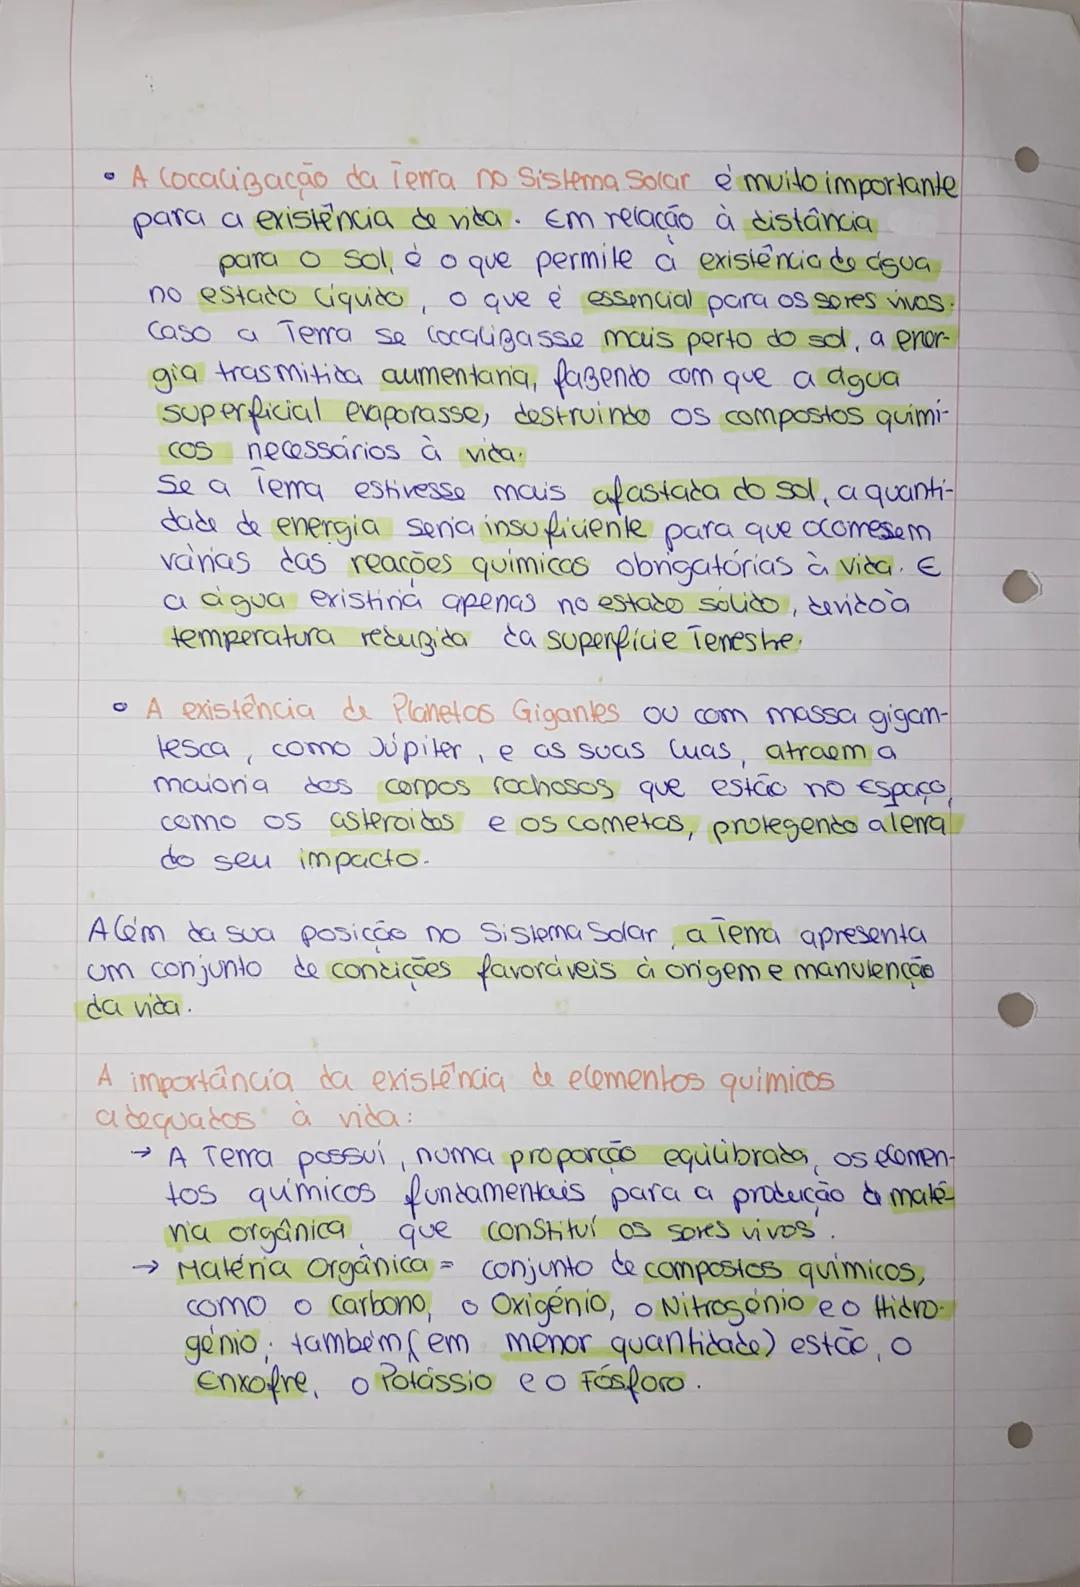 • A localização da Terra no Sistema Solar é muito importante
para a existência de vida. Em relação à distância
para o sol, é o que permite a existência de água
no estado líquido, o que é essencial para os seres vivos.
Caso a Terra se localizasse mais perto do sol, a ener-
gia trasmitida aumentaria, fazendo com que a água
superficial evaporasse, destruindo os compostos quími-
cos necessários à vida.
Se a Terra estivesse mais afastada do sol, a quanti-
dade de energia seria insuficiente para que ocorresem
várias das reações químicas obrigatórias à vida. E
a água existiria apenas no estado sólido, devido à
temperatura reduzida da superfície Terrestre.
• A existência de Planetas Gigantes ou com massa gigan-
tesca, como Júpiter, e as suas luas, atraem a
maioria dos corpos rochosos que estão no Espaço,
como os asteroidos e os cometas, protegendo a Terra
do seu impacto.
Além da sua posição no Sistema Solar, a Terra apresenta
um conjunto de condições favoráveis à origem e manutenção
da vida.
A importância da existência de elementos químicos
adequados à vida:
→ A Terra possuí, numa proporção equilibrada, os elemen-
tos químicos fundamentais para a produção de maté-
ria orgânica, que constituí os seres vivos.
→ Matéria Orgânica = conjunto de compostos químicos,
como o carbono, o Oxigénio, o Nitrogénio e o Hidro-
génio; também (em menor quantidade) estão, o
Enxofre, o Potássio e o Fósforo.